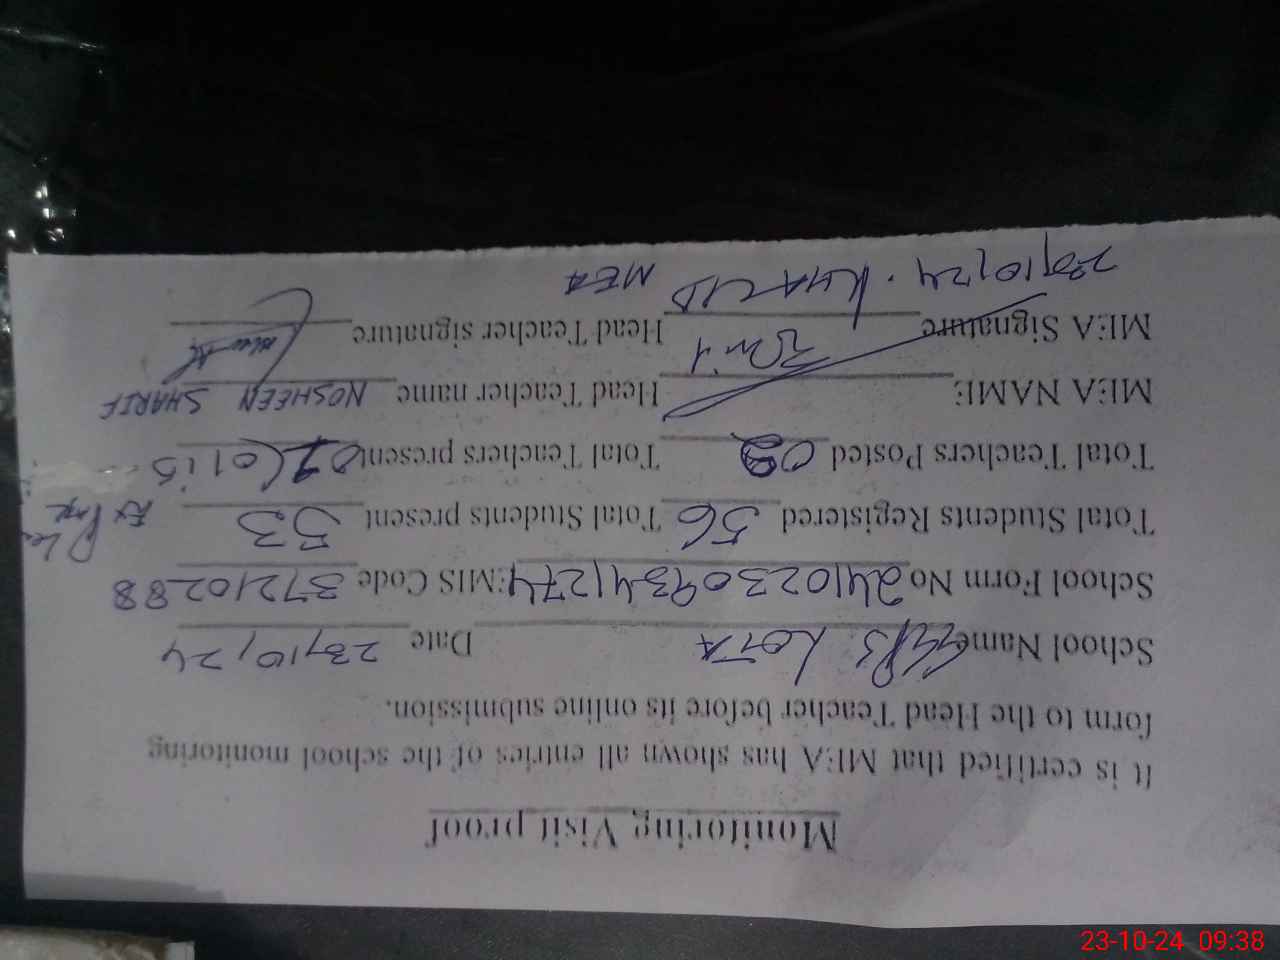 Monitoring Visit proof
It is certified that MEA has shown all entries of the school monitoring
form to the Head Teacher before its online submission.
School Name GGPS LOTA Date 23,10,24
School Form No 24102309341274 EMIS Code 37210288
Total Students Registered 56 Total Students present 53
Total Teachers Posted 02 Total Teachers present
MEA NAME Head Teacher name NOSHEEN SHARIF
MEA Signature Head Teacher signature
23,10,24 . KHALID MEA
23-10-24 09:38